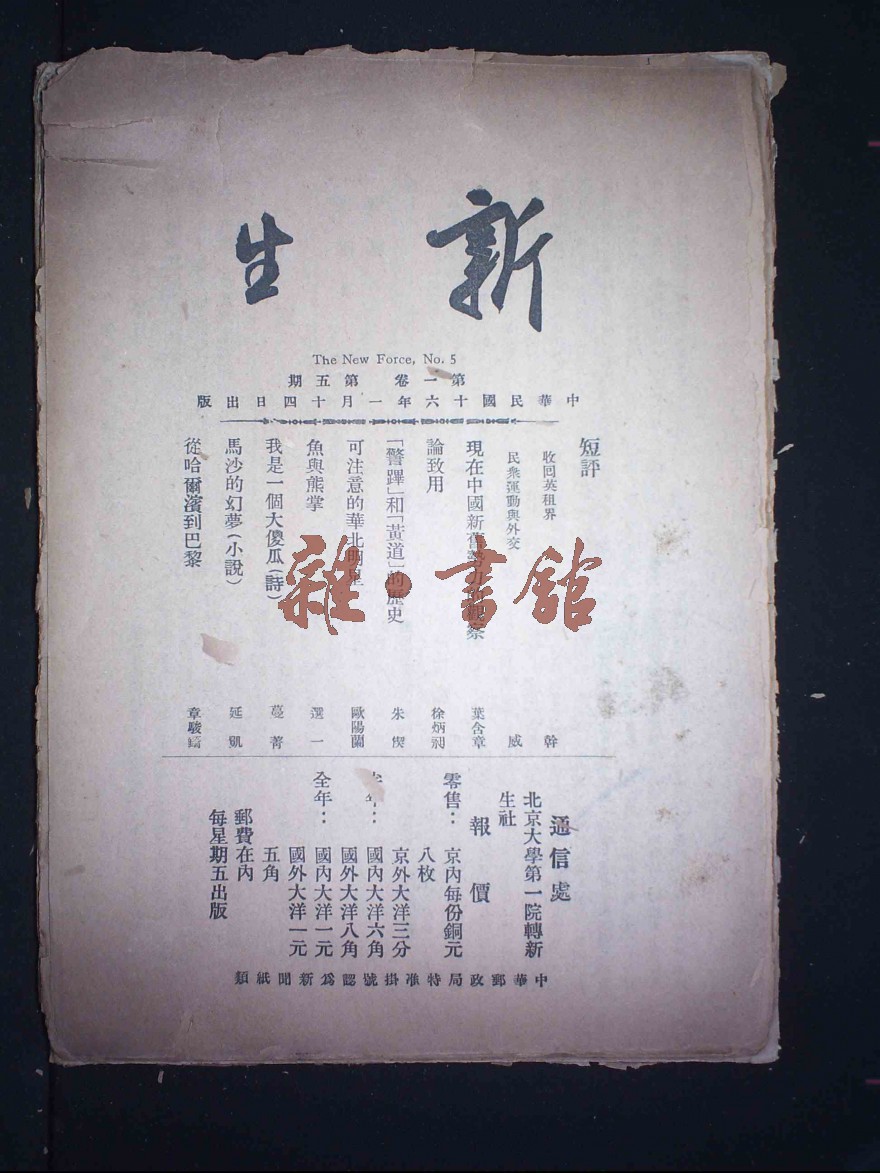 新生
The New Force, No. 5
第一卷 第五期
中華民國十六年一月十四日出版
短評
收回英租界 幹
民衆運動與外交 威
現在中國新舊勢力的觀察 葉含章
論致用 徐炳昶
「警蹕」和「黃道」的歷史 朱偰
可注意的華北明星 歐陽蘭
魚與熊掌 選一
我是一個大傻瓜(詩) 蔓菁
馬沙的幻夢(小說) 延凱
從哈爾濱到巴黎 章駿錡
通信處
北京大學第一院轉新
生社
報價
零售：京內每份銅元
八枚
京外大洋三分
年：國內大洋六角
國外大洋八角
全年：國內大洋一元
國外大洋一元
五角
郵費在內
每星期五出版
中華郵政局特准掛號認爲新聞紙類
雜·書館